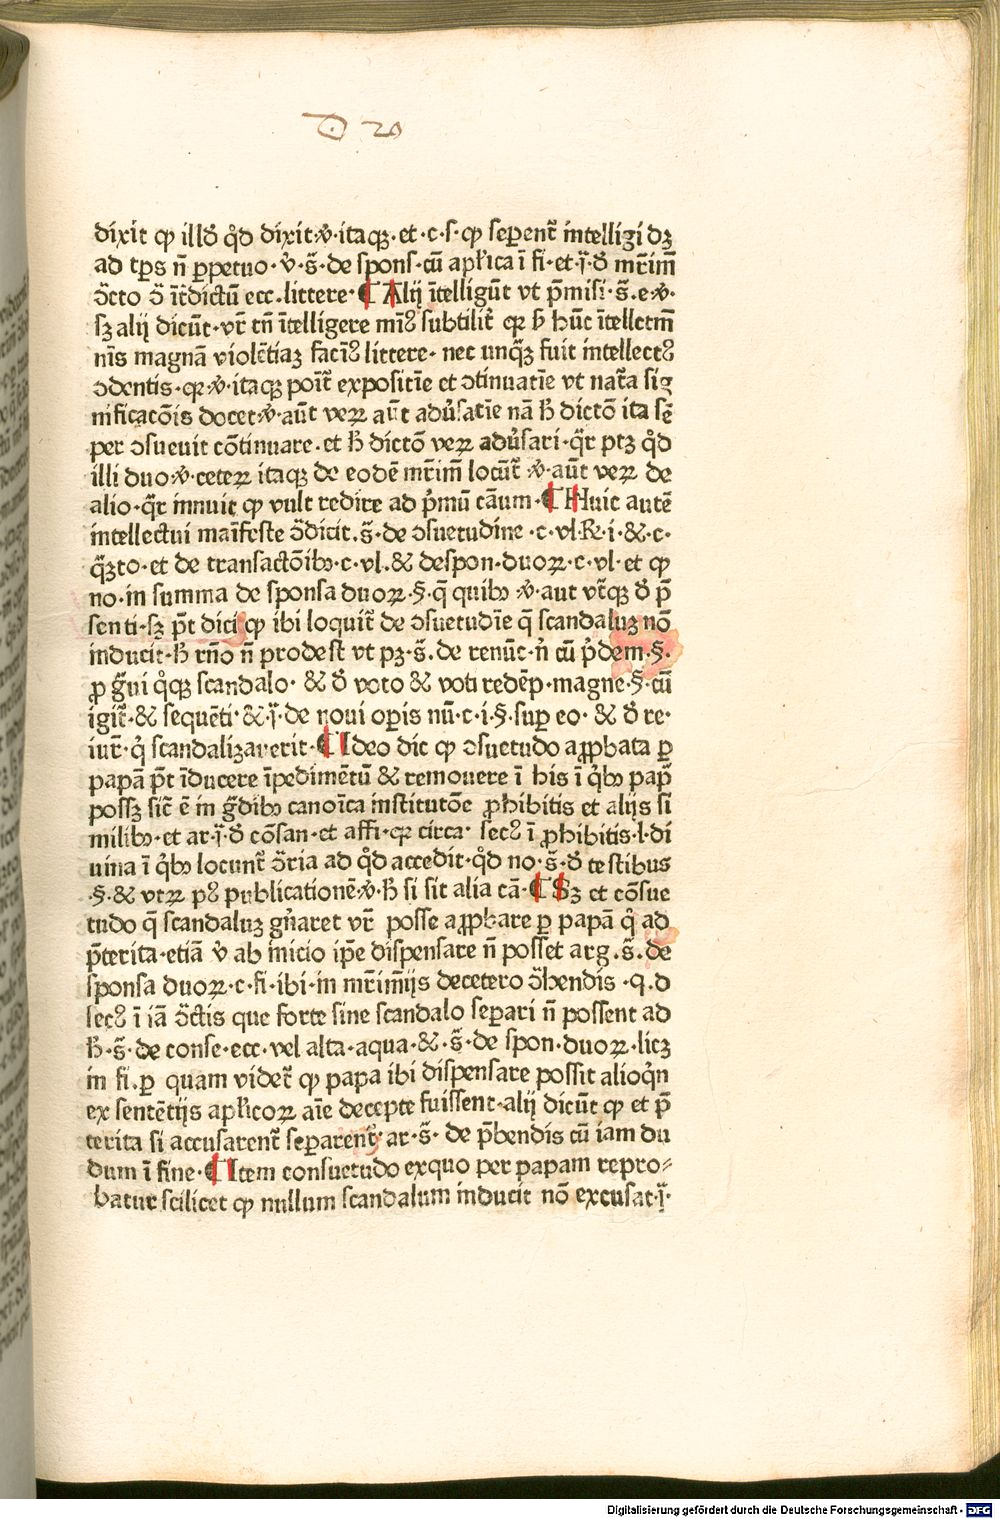 dixit ꝙ illđ qđ dixit·ꝟ·itaqꝫ·et·c·s·ꝙ seꝑent̃ intelligi dꝫ
ad tp̃s ñ ꝑpetuo·ꝟ·s̃·de spons·cũ apl'ica ĩ fi·et·j̃·đ mr̃im̃
ꝯ̃cto ꝯ̃ it̃dictũ ecc·littere·¶ Alij ĩtelligũt vt p̃misi·s̃·e·ꝟ·
sꝫ alij dicũt·vr̃ tñ ĩtelligere minꝰ subtilit̃ qꝛ ƀ hũc ĩtellcm̃
nĩs magnã violẽtiaꝫ faciũt littere· nec unq̃ꝫ fuit intellectꝰ
ꝯdentis·qꝛ·ꝟ·itaqꝫ poĩt expositĩe et ꝯtinuatĩe vt nat̃a sig
nificacõis docet·ꝟ·aũt veꝝ aũt aduˀsatĩe nã ħ dictõ ita sẽ
per ꝯsueuit cõtinuare·et ħ dictõ veꝝ aduˀsari·q̃r ptꝫ qđ
illi duo·ꝟ·ceteꝝ itaqꝫ de eodẽ mr̃im̃ locũt̃ ꝟ·aũt veꝝ de
alio·q̃r innuit ꝙ vult redire ad p̃mũ cãum·¶ Huic autẽ
intellectui maĩfeste ꝯ̃dicit·s̃·de ꝯsuetudine ·c·vl·R·i·&·c·
q̃ꝫto·et de transactõibꝫ·c·vl·& despon·duoꝝ·c·vl·et ꝙ
no·in summa de sponsa duoꝝ·§·q̃ quibꝫ ꝟ·aut vt̃qꝫ đ p̃
senti·sꝫ p̃t dici ꝙ ibi loquit̃ de ꝯsuetudĩe q̃ scandaluꝫ nõ
inducit·ħ rño ñ prodest vt pꝫ·s̃·de renũt·ñ cũ p̃dem·§·
ꝓ g̃ui q̊cqꝫ scandalo· & đ voto & voti redẽp·magne·§·cũ
igit̃·& sequẽti·&·j̃·de noui opĩs nũ·c·i·§·suꝑ eo· & đ re·
iur̃·q̊ scandalizauerit·¶ Ideo dic ꝙ ꝯsuetudo aꝓbata ꝑ
papã p̃t ĩducere ĩpedimẽtũ & remouere ĩ his ĩ q̊bꝫ pap̃
possꝫ sic̃ ẽ in g̃dibꝫ canoĩca institutõe ꝓhibitis et alijs si
milibꝫ·et ar·j̃·đ cõsan·et affi·qꝛ circa· secꝰ ĩ ꝓhibitis·l·di
uina ĩ q̊bꝫ locunt̃ ꝯ̃ria ad qđ accedit·qđ no·s̃·đ testibus
·§·& vtꝝ pꝰ publicationẽ·ꝟ·ħ si sit alia cã·¶ Sꝫ et cõsue
tudo q̃ scandaluꝫ gñaret vr̃ posse aꝓbare ꝑ papã q̊ ad
p̃terita·etiã ꝟ ab inicio ip̃e dispensare ñ posset arg·s̃·de
sponsa duoꝝ·c·fi·ibi·in mr̃im̃ijs decetero ꝯ̃hendis ·q·d
secꝰ ĩ iã ꝯ̃ctis que forte sine scandalo seꝑari ñ possent ad
ħ·s̃·de conse·ecc·vel alta·aqua·&·s̃·de spon·duoꝝ·licꝫ
in fi·ꝑ quam videt̃ ꝙ papa ibi dispensare possit alioq̊n
ex sentẽtijs apl'icoꝝ aĩe decepte fuissent·alij dicũt ꝙ et p̃
terita si accusarent̃ seꝑarent̃·ar·s̃· de p̃bendis cũ iam du
dum ĩ fine·¶ Item consuetudo exquo per papam repro⸗
batur scilicet ꝙ nullum scandalum inducit nõ excusat·j̃·
Digitalisierung gefördert durch die Deutsche Forschungsgemeinschaft - DFG